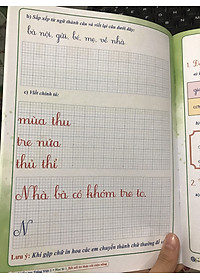 b) Sắp xếp từ ngữ thành câu và viết lại câu dưới đây:
bà nội, gửi, bé, mẹ, về nhà
c) Viết chính tả:
mùa thu
tre nứa
thủ thỉ
Nhà bà có khóm tre to.
N
Lưu ý: Khi gặp chữ in hoa các em chuyển thành chữ thường để